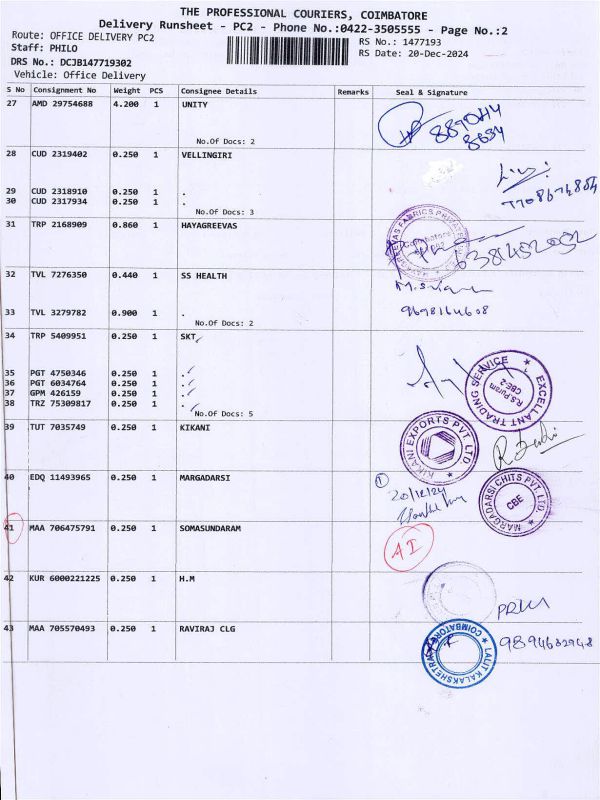 THE PROFESSIONAL COURIERS, COIMBATORE
Delivery Runsheet - PC2 - Phone No.:0422-3505555 - Page No.:2
Route: OFFICE DELIVERY PC2
Staff: PHILO
DRS No.: DCJB147719302
Vehicle: Office Delivery
RS No.: 1477193
RS Date: 20-Dec-2024
S No Consignment No Weight PCS Consignee Details Remarks Seal & Signature
27 AMD 29754688 4.200 1 UNITY
No.Of Docs: 2
28 CUD 2319402 0.250 1 VELLINGIRI
29 CUD 2318910 0.250 1 .
30 CUD 2317934 0.250 1 .
No.Of Docs: 3
7708674804
31 TRP 2168909 0.860 1 HAYAGREEVAS
Coimbatore
6381452052
32 TVL 7276350 0.440 1 SS HEALTH
33 TVL 3279782 0.900 1 .
No.Of Docs: 2
9698164608
34 TRP 5409951 0.250 1 SKT
35 PGT 4750346 0.250 1 .
36 PGT 6034764 0.250 1 .
37 GPM 426159 0.250 1 .
38 TRZ 75309817 0.250 1 .
No.Of Docs: 5
EXCELLANT TRADING SERVICE
R.S Puram
CBE-2
39 TUT 7035749 0.250 1 KIKANI
KIKANI EXPORTS PVT. LTD.
40 EDQ 11493965 0.250 1 MARGADARSI
1
20/12/24
MARGADARSI CHITS PVT. LTD.
CBE
41 MAA 706475791 0.250 1 SOMASUNDARAM
AI
42 KUR 6000221225 0.250 1 H.M
43 MAA 705570493 0.250 1 RAVIRAJ CLG
LALIT KALAKSHETRA
COIMBATORE
9894682948